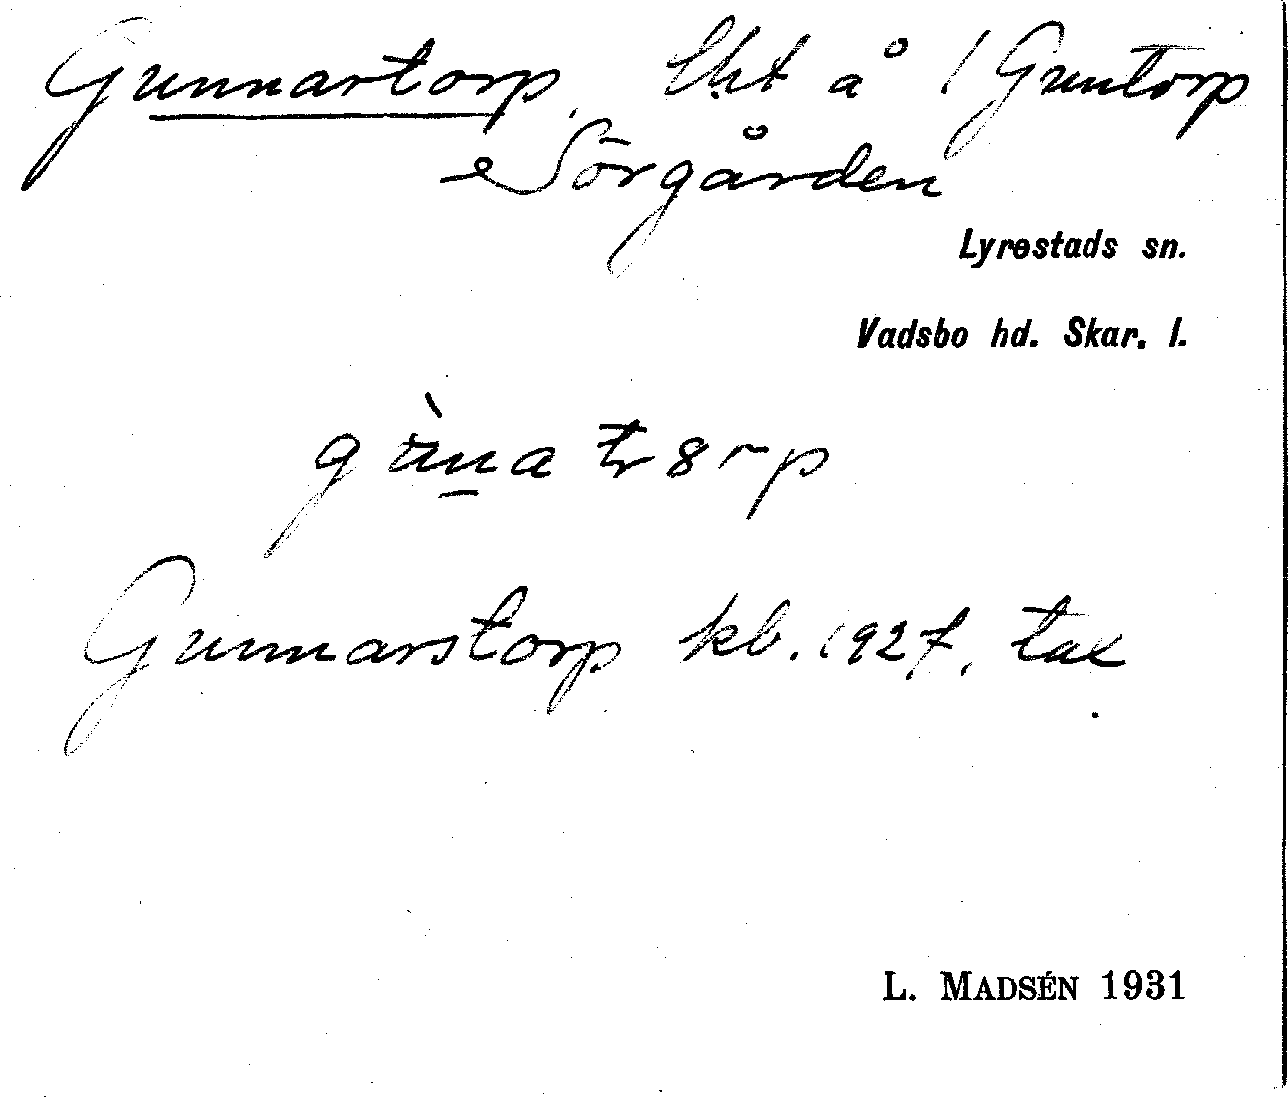 Gunnartorp, lht å 1 Guntorp
Sörgården
Lyrestads sn.
Vadsbo hd. Skar. l.
Gunnarstorp kb. 1927, tax
L. MADSÉN 1931